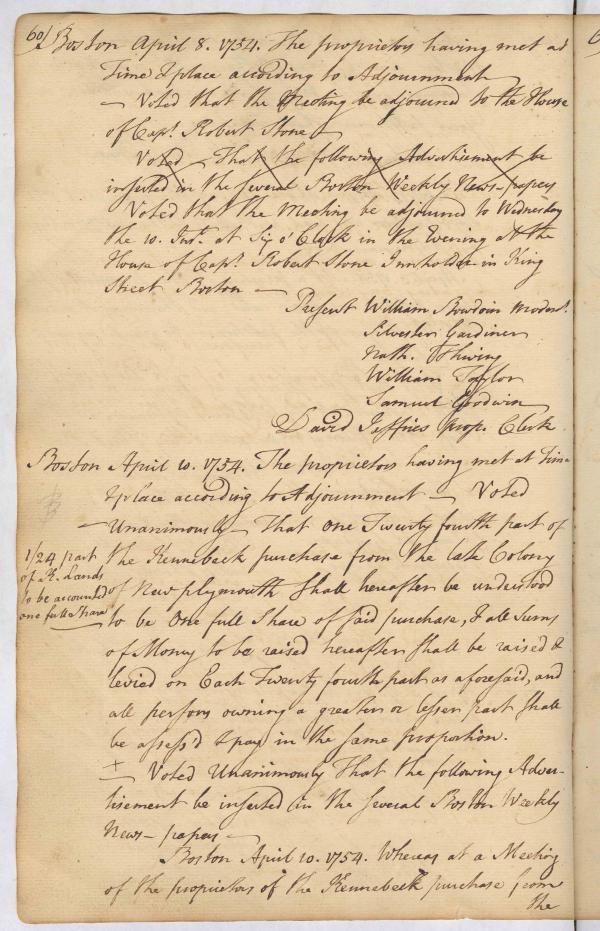 60
Boston April 8. 1754. The proprietors having met at
Time & place according to Adjournment
— Voted that the Meeting be adjourned to the House
of Capt. Robert Stone —
Voted — That the following Advertisement be
inserted in the several Boston Weekly News-papers
Voted that the Meeting be adjourned to Wednesday
the 10. Inst. at Six o'Clock in the Evening at the
House of Capt. Robert Stone Innholder in King
Street Boston —
Present William Bowdoin Moder.
Silvester Gardiner
Nath. Thwing
William Taylor
Samuel Goodwin
David Jeffries prop. Clerk
Boston April 10. 1754. The proprietors having met at Time
& place according to Adjournment — Voted
— Unanimously — That One Twenty fourth part of
1/24 part
of K. Lands
to be accounted
one full Share
the Kennebeck purchase from the late Colony
of New plymouth Shall hereafter be understood
to be One full Share of said purchase, & all Sums
of Money to be raised hereafter shall be raised &
levied on Each Twenty fourth part as aforesaid, and
all persons owning a greater or lesser part shall
be assess'd & pay in the same proportion.
+
— Voted Unanimously That the following Adver-
tisement be inserted in the several Boston Weekly
News-papers —
Boston April 10. 1754. Whereas at a Meeting
of the proprietors of the Kennebeck purchase from
the